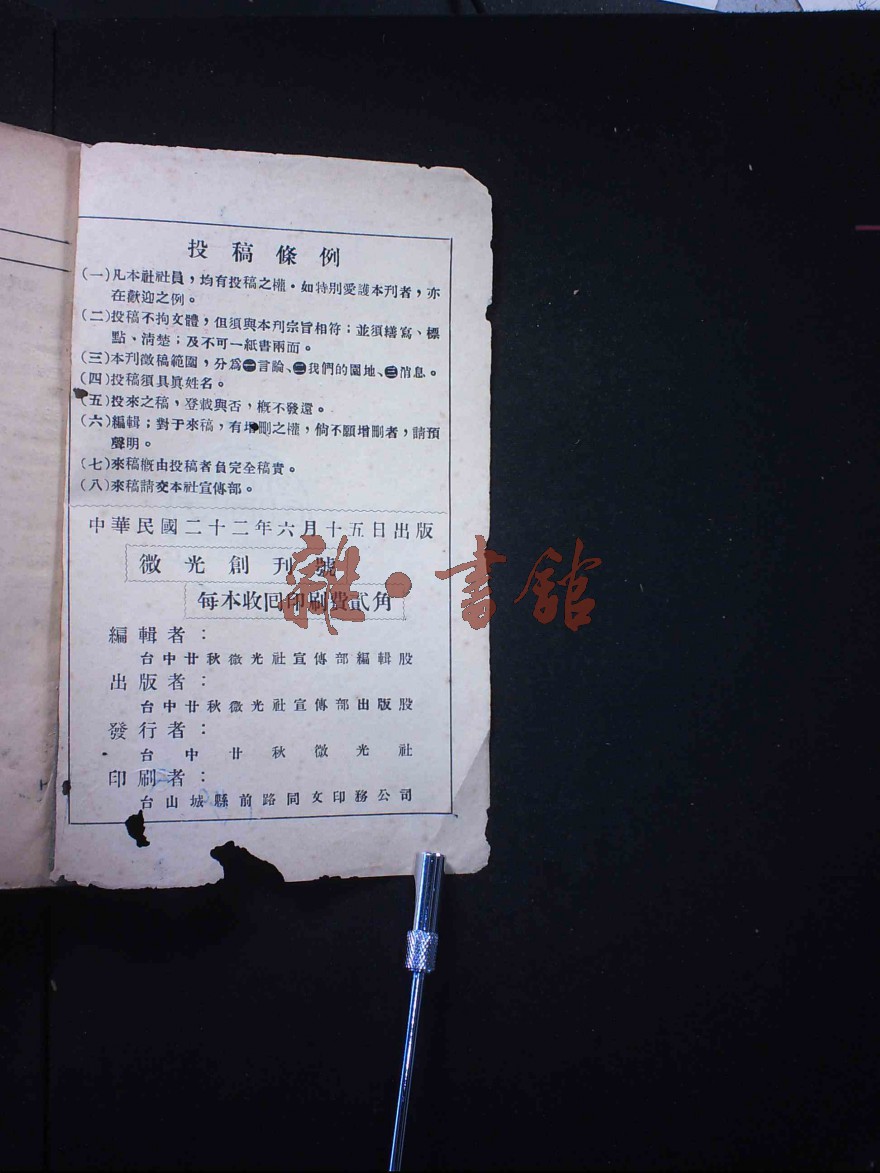 投稿條例
(一)凡本社社員，均有投稿之權。如特別愛護本刊者，亦
在歡迎之例。
(二)投稿不拘文體，但須與本刊宗旨相符；並須繕寫、標
點、清楚；及不可一紙書兩面。
(三)本刊徵稿範圍，分爲㊀言論、㊁我們的園地、㊂消息。
(四)投稿須具眞姓名。
(五)投來之稿，登載與否，槪不發還。
(六)編輯；對于來稿，有增刪之權，倘不願增刪者，請預
聲明。
(七)來稿槪由投稿者負完全稿責。
(八)來稿請交本社宣傳部。
中華民國二十二年六月十五日出版
微光創刊號
每本收回印刷費貳角
編輯者：
台中廿秋微光社宣傳部編輯股
出版者：
台中廿秋微光社宣傳部出版股
發行者：
台中廿秋微光社
印刷者：
台山城縣前路同文印務公司
雜·書館